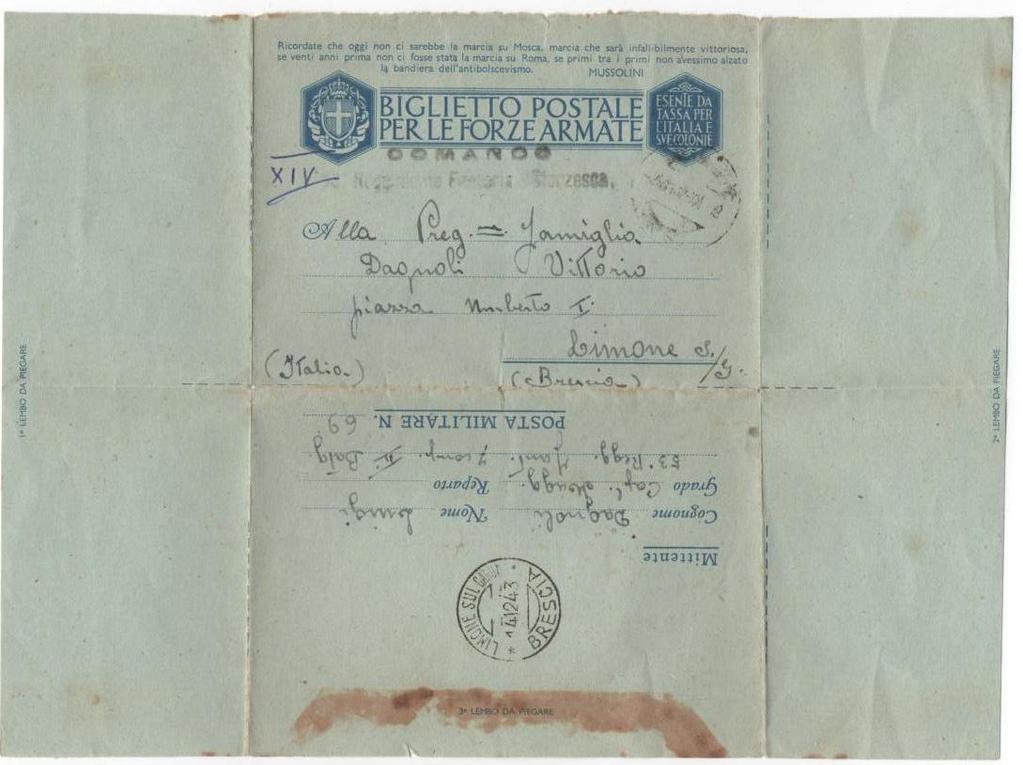 Ricordate che oggi non ci sarebbe la marcia su Mosca, marcia che sarà infallibilmente vittoriosa,
se venti anni prima non ci fosse stata la marcia su Roma, se primi tra i primi non avessimo alzato
la bandiera dell'antibolscevismo. MUSSOLINI
BIGLIETTO POSTALE
PER LE FORZE ARMATE
ESENTE DA
TASSA PER
L'ITALIA E
SVE COLONIE
COMANDO
XIV
Reggimento Fanteria Sforzesca,
Alla Preg. Famiglia
Dagnoli Vittorio
piazza Umberto I.
Limone S/G.
(Italia)
(Brescia)
1º LEMBO DA PIEGARE
2º LEMBO DA PIEGARE
Mittente
Cognome Dagnoli Nome Luigi
Grado Cap. Magg. Reparto
53° Regg. Fant. 7 comp. II Batg.
POSTA MILITARE N. 69
LIMONE SUL GARDA
BRESCIA
3º LEMBO DA PIEGARE